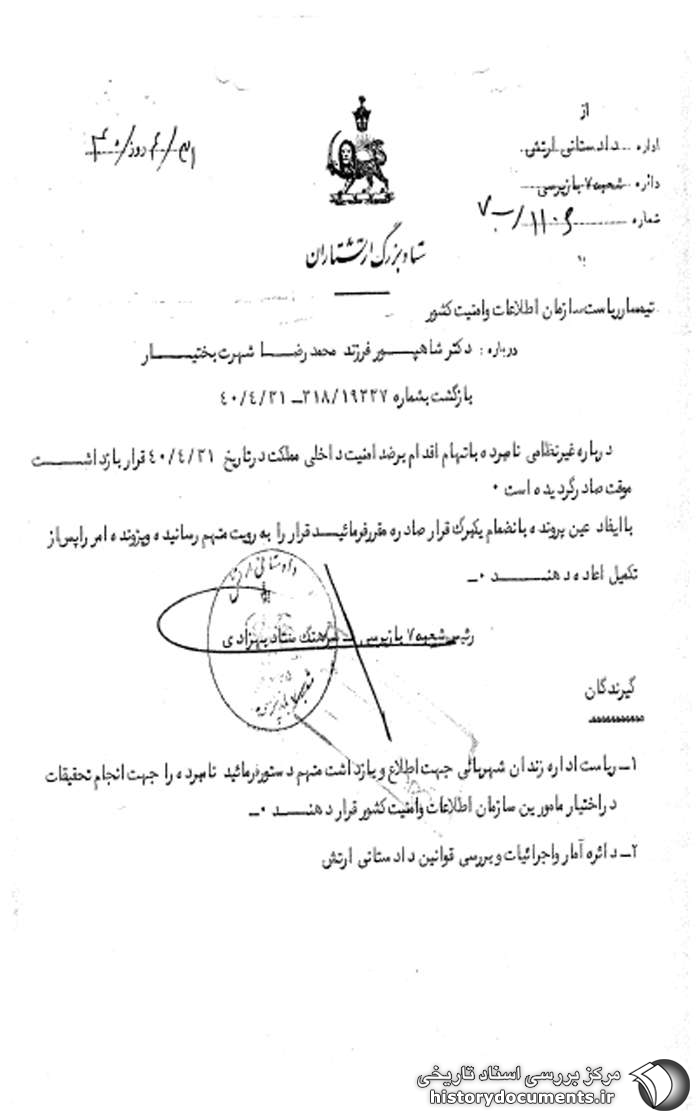 از
اداره دادستانی ارتش
دائره شعبه ۷ بازپرسی
شماره
ستاد بزرگ ارتشتاران
تیمسار ریاست سازمان اطلاعات و امنیت کشور
درباره : دکتر شاهپور فرزند محمد رضا شهرت بختیار
بازگشت بشماره ۳۱۸/۱۹۳۳۷ـ ۴۰/۴/۳۱
درباره غیرنظامی نامبرده باتهام اقدام برضد امنیت داخلی مملکت درتاریخ ۴۰/۴/۳۱ قرار بازداشت
موقت صادر گردیده است ۰
با ایفاد عین پرونده بانضمام یکبرگ قرار صادره مقررفرمائید قرار را به رویت متهم رسانیده و پرونده امر را پس از
تکمیل اعاده دهند ۰ـ
دادستانی ارتش
رئیس شعبه ۷ بازپرسی ـ سرهنگ ستاد بهزادی
شعبه ۷ بازپرسی
گیرندگان
۱ـ ریاست اداره زندان شهربانی جهت اطلاع و بازداشت متهم دستورفرمائید نامبرده را جهت انجام تحقیقات
در اختیار مامورین سازمان اطلاعات وامنیت کشور قرار دهند ۰ـ
۲ـ دائره آمار واجرائیات و بررسی قوانین دادستانی ارتش
مرکز بررسی اسناد تاریخی
historydocuments.ir